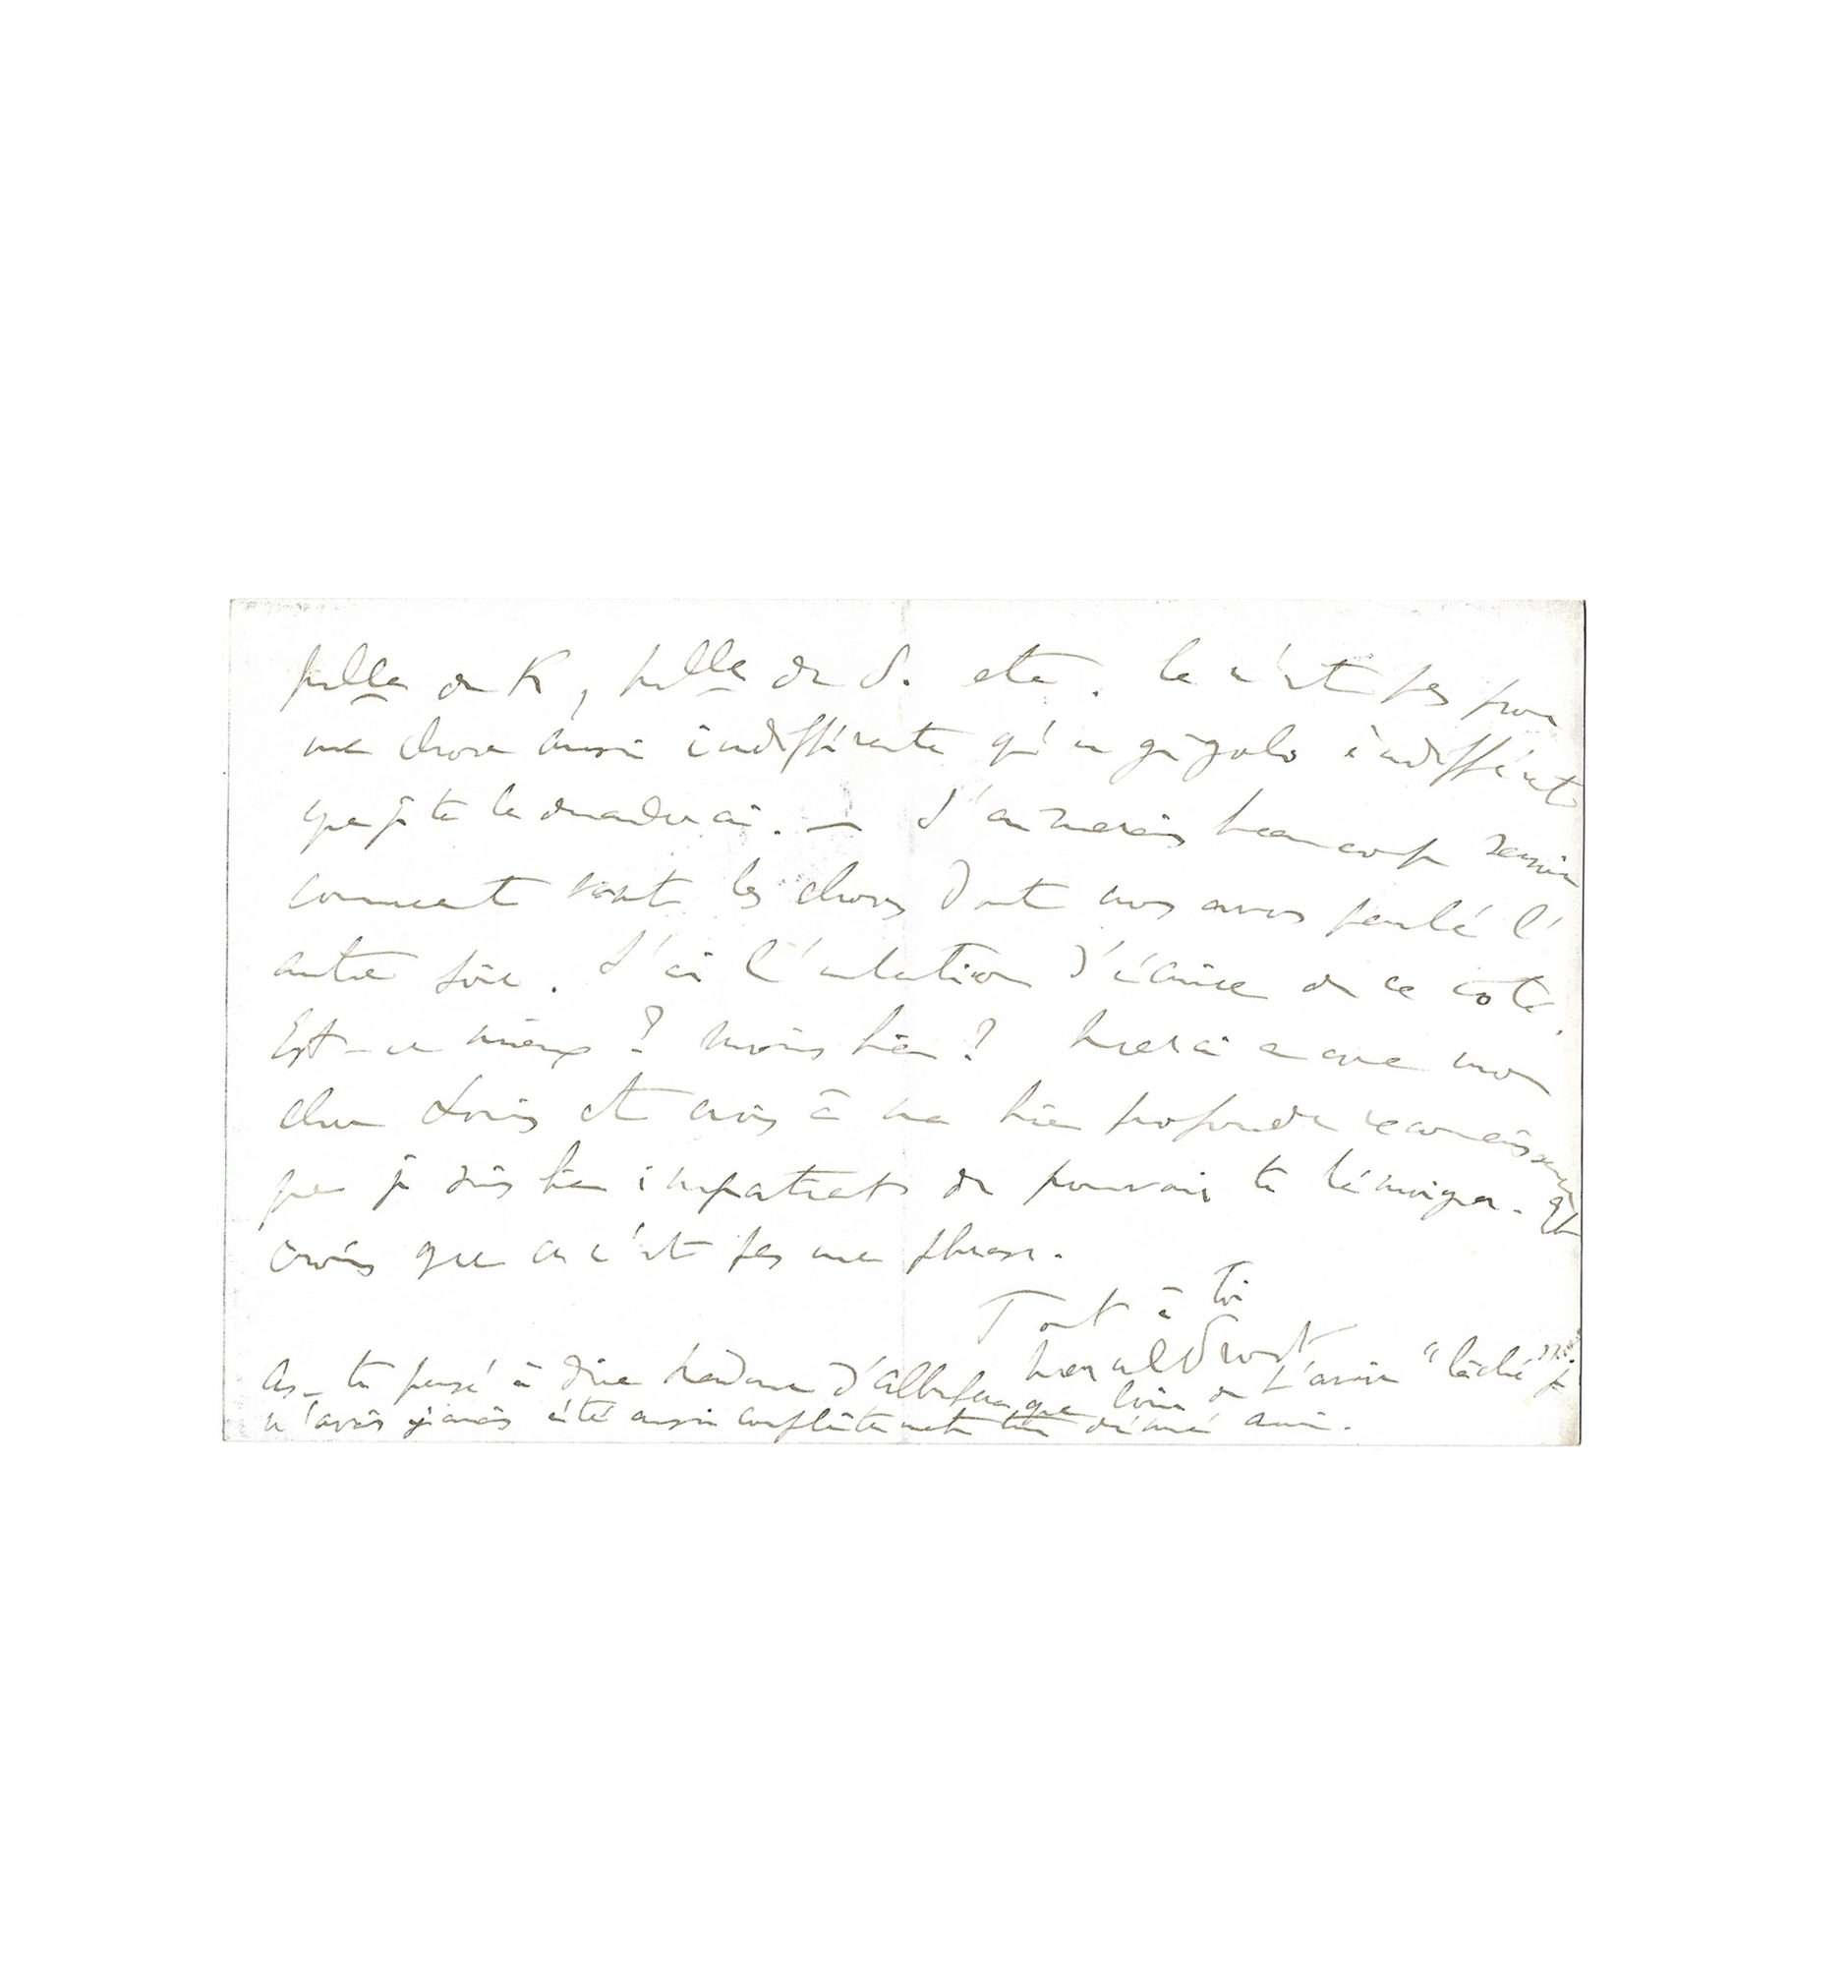 de K, de S. etc. Ce n'est pas pour
une chose aussi indifférente qu'un gigolo indifférent
que je te le demanderai. — J'aimerais beaucoup savoir
comment vont les choses dont nous avons parlé l'
autre soir. J'ai l'intention d'écrire de ce côté.
Est-ce mieux ? Moins bien ? Merci encore mon
cher Louis et crois à ma bien profonde reconnaissance
que je suis bien impatient de pouvoir te témoigner. Et
crois que ce n'est pas une phrase.
Tout à toi
Marcel Proust
As-tu pensé à dire à Madame d'Albufera que loin de t'avoir "lâché" je
n'avais jamais été aussi complètement ton dévoué ami.